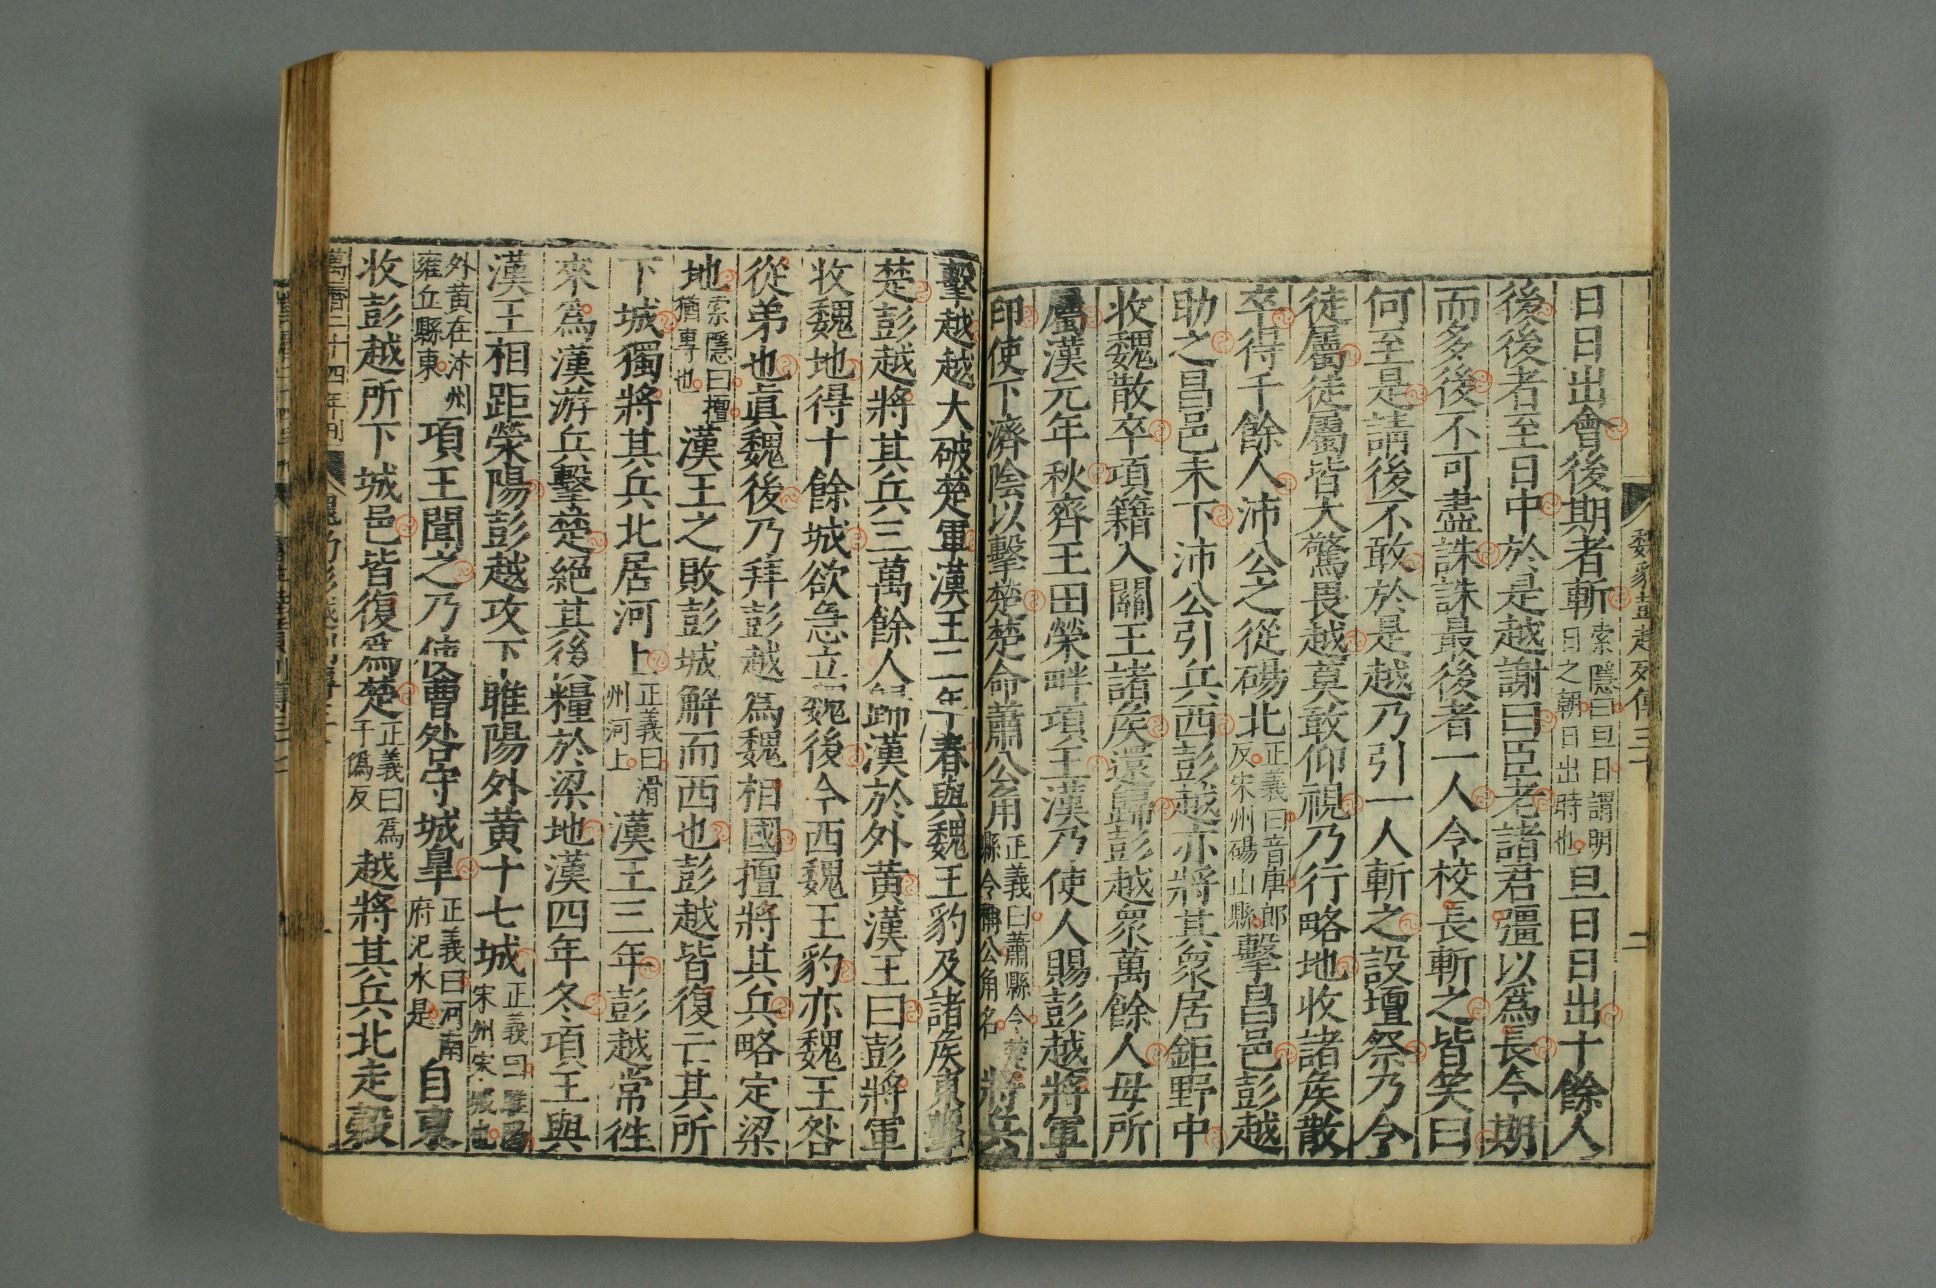 魏豹彭越列傳三十 二
日日出會後期者斬索隱曰旦日謂明日之朝日出時也旦日日出十餘人
後後者至日中於是越謝曰臣老諸君彊以爲長今期
而多後不可盡誅誅最後者一人令校長斬之皆笑曰
何至是請後不敢於是越乃引一人斬之設壇祭乃令
徒屬徒屬皆大驚畏越莫敢仰視乃行略地收諸矦散
卒得千餘人沛公之從碭北正義曰音唐郎反宋州碭山縣擊昌邑彭越
助之昌邑未下沛公引兵西彭越亦將其衆居鉅野中
收魏散卒項籍入關王諸矦還歸彭越衆萬餘人毋所
屬漢元年秋齊王田榮畔項王漢乃使人賜彭越將軍
印使下濟陰以擊楚楚命蕭公角正義曰蕭縣令楚縣令稱公角名將兵
擊越越大破楚軍漢王二年春與魏王豹及諸矦東擊
楚彭越將其兵三萬餘人歸漢於外黄漢王曰彭將軍
收魏地得十餘城欲急立魏後今西魏王豹亦魏王咎
從弟也眞魏後乃拜彭越爲魏相國擅將其兵略定梁
地索隱曰擅猶專也漢王之敗彭城解而西也彭越皆復亡其所
下城獨將其兵北居河上正義曰滑州河上漢王三年彭越常徃
來爲漢游兵擊楚絕其後糧於梁地漢四年冬項王與
漢王相距滎陽彭越攻下睢陽外黄十七城正義曰睢陽宋州宋城也
外黄在汴州雍丘縣東項王聞之乃使曹咎守城皐正義曰河南府汜水是自東
收彭越所下城邑皆復爲楚正義曰爲于僞反越將其兵北走穀
萬曆二十四年刊